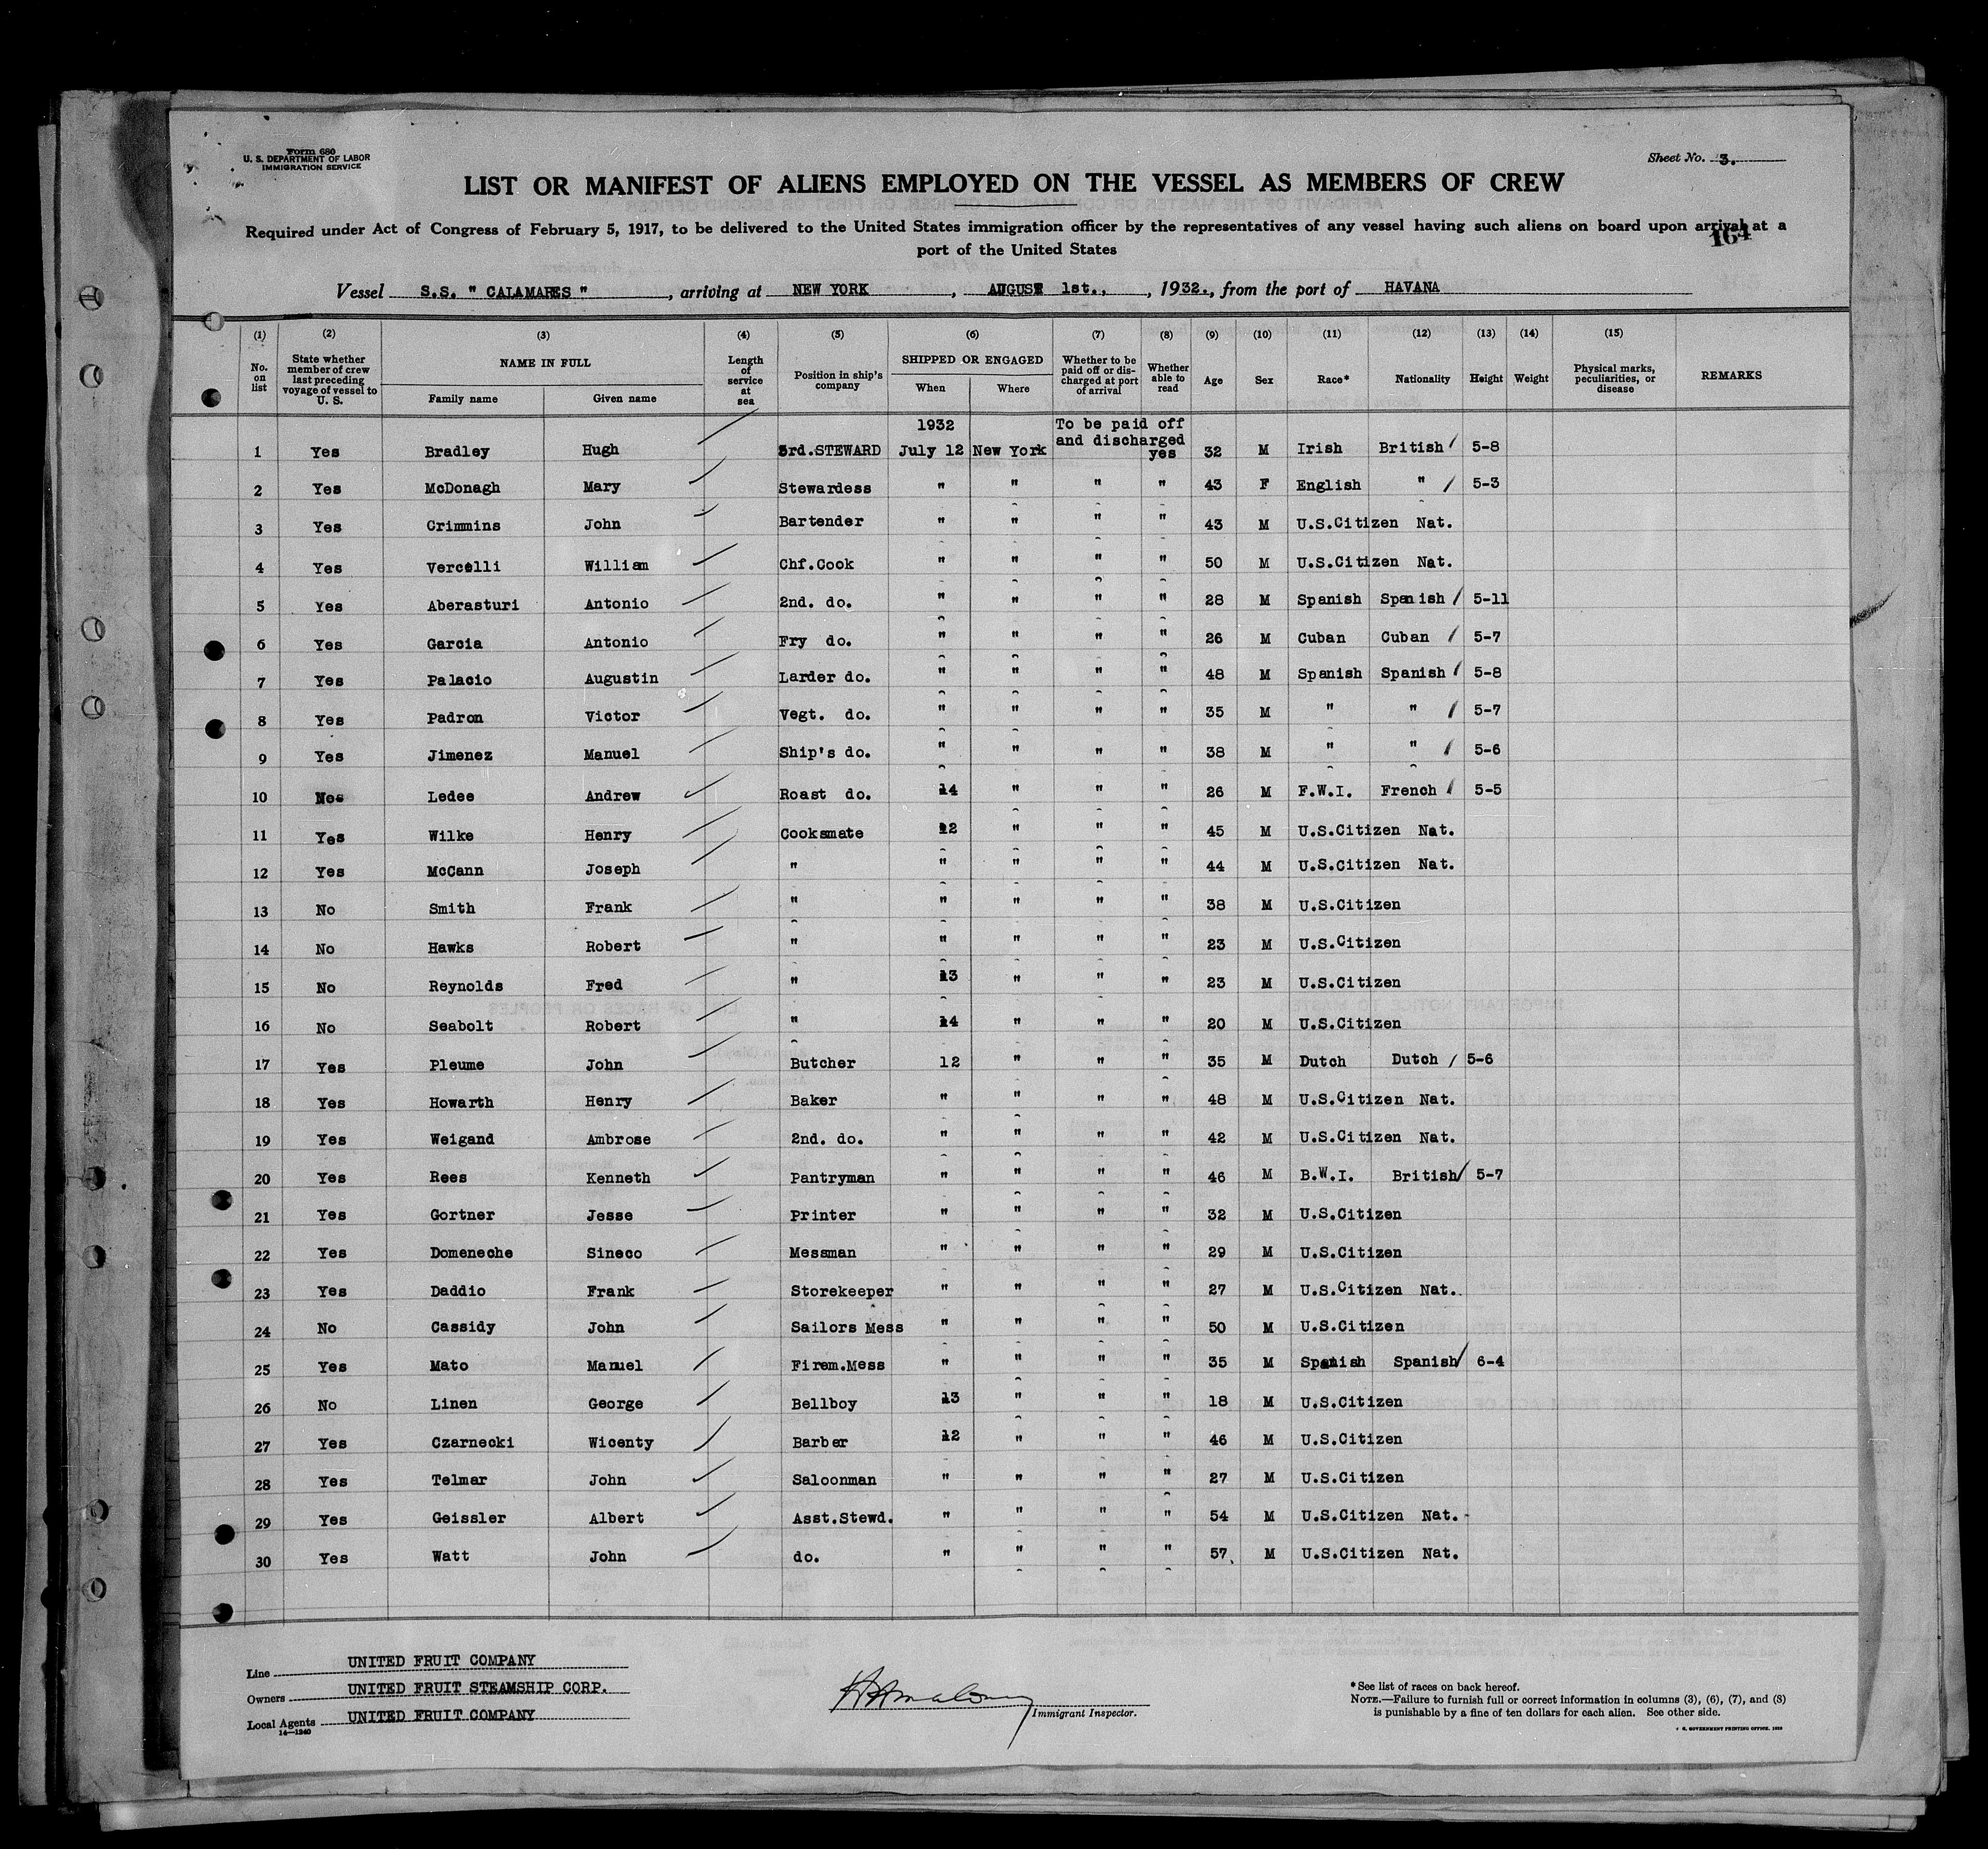 Form 680
U. S. DEPARTMENT OF LABOR
IMMIGRATION SERVICE
Sheet No. 3.
LIST OR MANIFEST OF ALIENS EMPLOYED ON THE VESSEL AS MEMBERS OF CREW
Required under Act of Congress of February 5, 1917, to be delivered to the United States immigration officer by the representatives of any vessel having such aliens on board upon arrival at a
port of the United States
164
Vessel S.S. " CALAMARES ", arriving at NEW YORK, AUGUST 1st., , 1932., from the port of HAVANA
(1) (2) (3) (4) (5) (6) (7) (8) (9) (10) (11) (12) (13) (14) (15)
No. on list | State whether member of crew last preceding voyage of vessel to U. S. | NAME IN FULL | Family name | Given name | Length of service at sea | Position in ship's company | SHIPPED OR ENGAGED | When | Where | Whether to be paid off or discharged at port of arrival | Whether able to read | Age | Sex | Race* | Nationality | Height | Weight | Physical marks, peculiarities, or disease | REMARKS
1932 To be paid off
and discharged
1 Yes Bradley Hugh 3rd.STEWARD July 12 New York yes 32 M Irish British 5-8
2 Yes McDonagh Mary Stewardess " " " " 43 F English " 5-3
3 Yes Crimmins John Bartender " " " " 43 M U.S.Citizen Nat.
4 Yes Vercelli William Chf.Cook " " " " 50 M U.S.Citizen Nat.
5 Yes Aberasturi Antonio 2nd. do. " " " " 28 M Spanish Spanish 5-11
6 Yes Garcia Antonio Fry do. " " " " 26 M Cuban Cuban 5-7
7 Yes Palacio Augustin Larder do. " " " " 48 M Spanish Spanish 5-8
8 Yes Padron Victor Vegt. do. " " " " 35 M " " 5-7
9 Yes Jimenez Manuel Ship's do. " " " " 38 M " " 5-6
10 Ledee Andrew Roast do. 14 " " " 26 M F.W.I. French 5-5
11 Yes Wilke Henry Cooksmate 12 " " " 45 M U.S.Citizen Nat.
12 Yes McCann Joseph " " " " " 44 M U.S.Citizen Nat.
13 No Smith Frank " " " " " 38 M U.S.Citizen
14 No Hawks Robert " " " " " 23 M U.S.Citizen
15 No Reynolds Fred " 13 " " " 23 M U.S.Citizen
16 No Seabolt Robert " 14 " " " 20 M U.S.Citizen
17 Yes Pleume John Butcher 12 " " " 35 M Dutch Dutch 5-6
18 Yes Howarth Henry Baker " " " " 48 M U.S.Citizen Nat.
19 Yes Weigand Ambrose 2nd. do. " " " " 42 M U.S.Citizen Nat.
20 Yes Rees Kenneth Pantryman " " " " 46 M B.W.I. British 5-7
21 Yes Gortner Jesse Printer " " " " 32 M U.S.Citizen
22 Yes Domeneche Sineco Messman " " " " 29 M U.S.Citizen
23 Yes Daddio Frank Storekeeper " " " " 27 M U.S.Citizen Nat.
24 No Cassidy John Sailors Mess " " " " 50 M U.S.Citizen
25 Yes Mato Manuel Firem.Mess " " " " 35 M Spanish Spanish 6-4
26 No Linen George Bellboy 13 " " " 18 M U.S.Citizen
27 Yes Czarnecki Wicenty Barber 12 " " " 46 M U.S.Citizen
28 Yes Telmar John Saloonman " " " " 27 M U.S.Citizen
29 Yes Geissler Albert Asst.Stewd. " " " " 54 M U.S.Citizen Nat.
30 Yes Watt John do. " " " " 57 M U.S.Citizen Nat.
Line UNITED FRUIT COMPANY
Owners UNITED FRUIT STEAMSHIP CORP.
Local Agents UNITED FRUIT COMPANY
14—1240
Immigrant Inspector.
* See list of races on back hereof.
NOTE.—Failure to furnish full or correct information in columns (3), (6), (7), and (8)
is punishable by a fine of ten dollars for each alien. See other side.